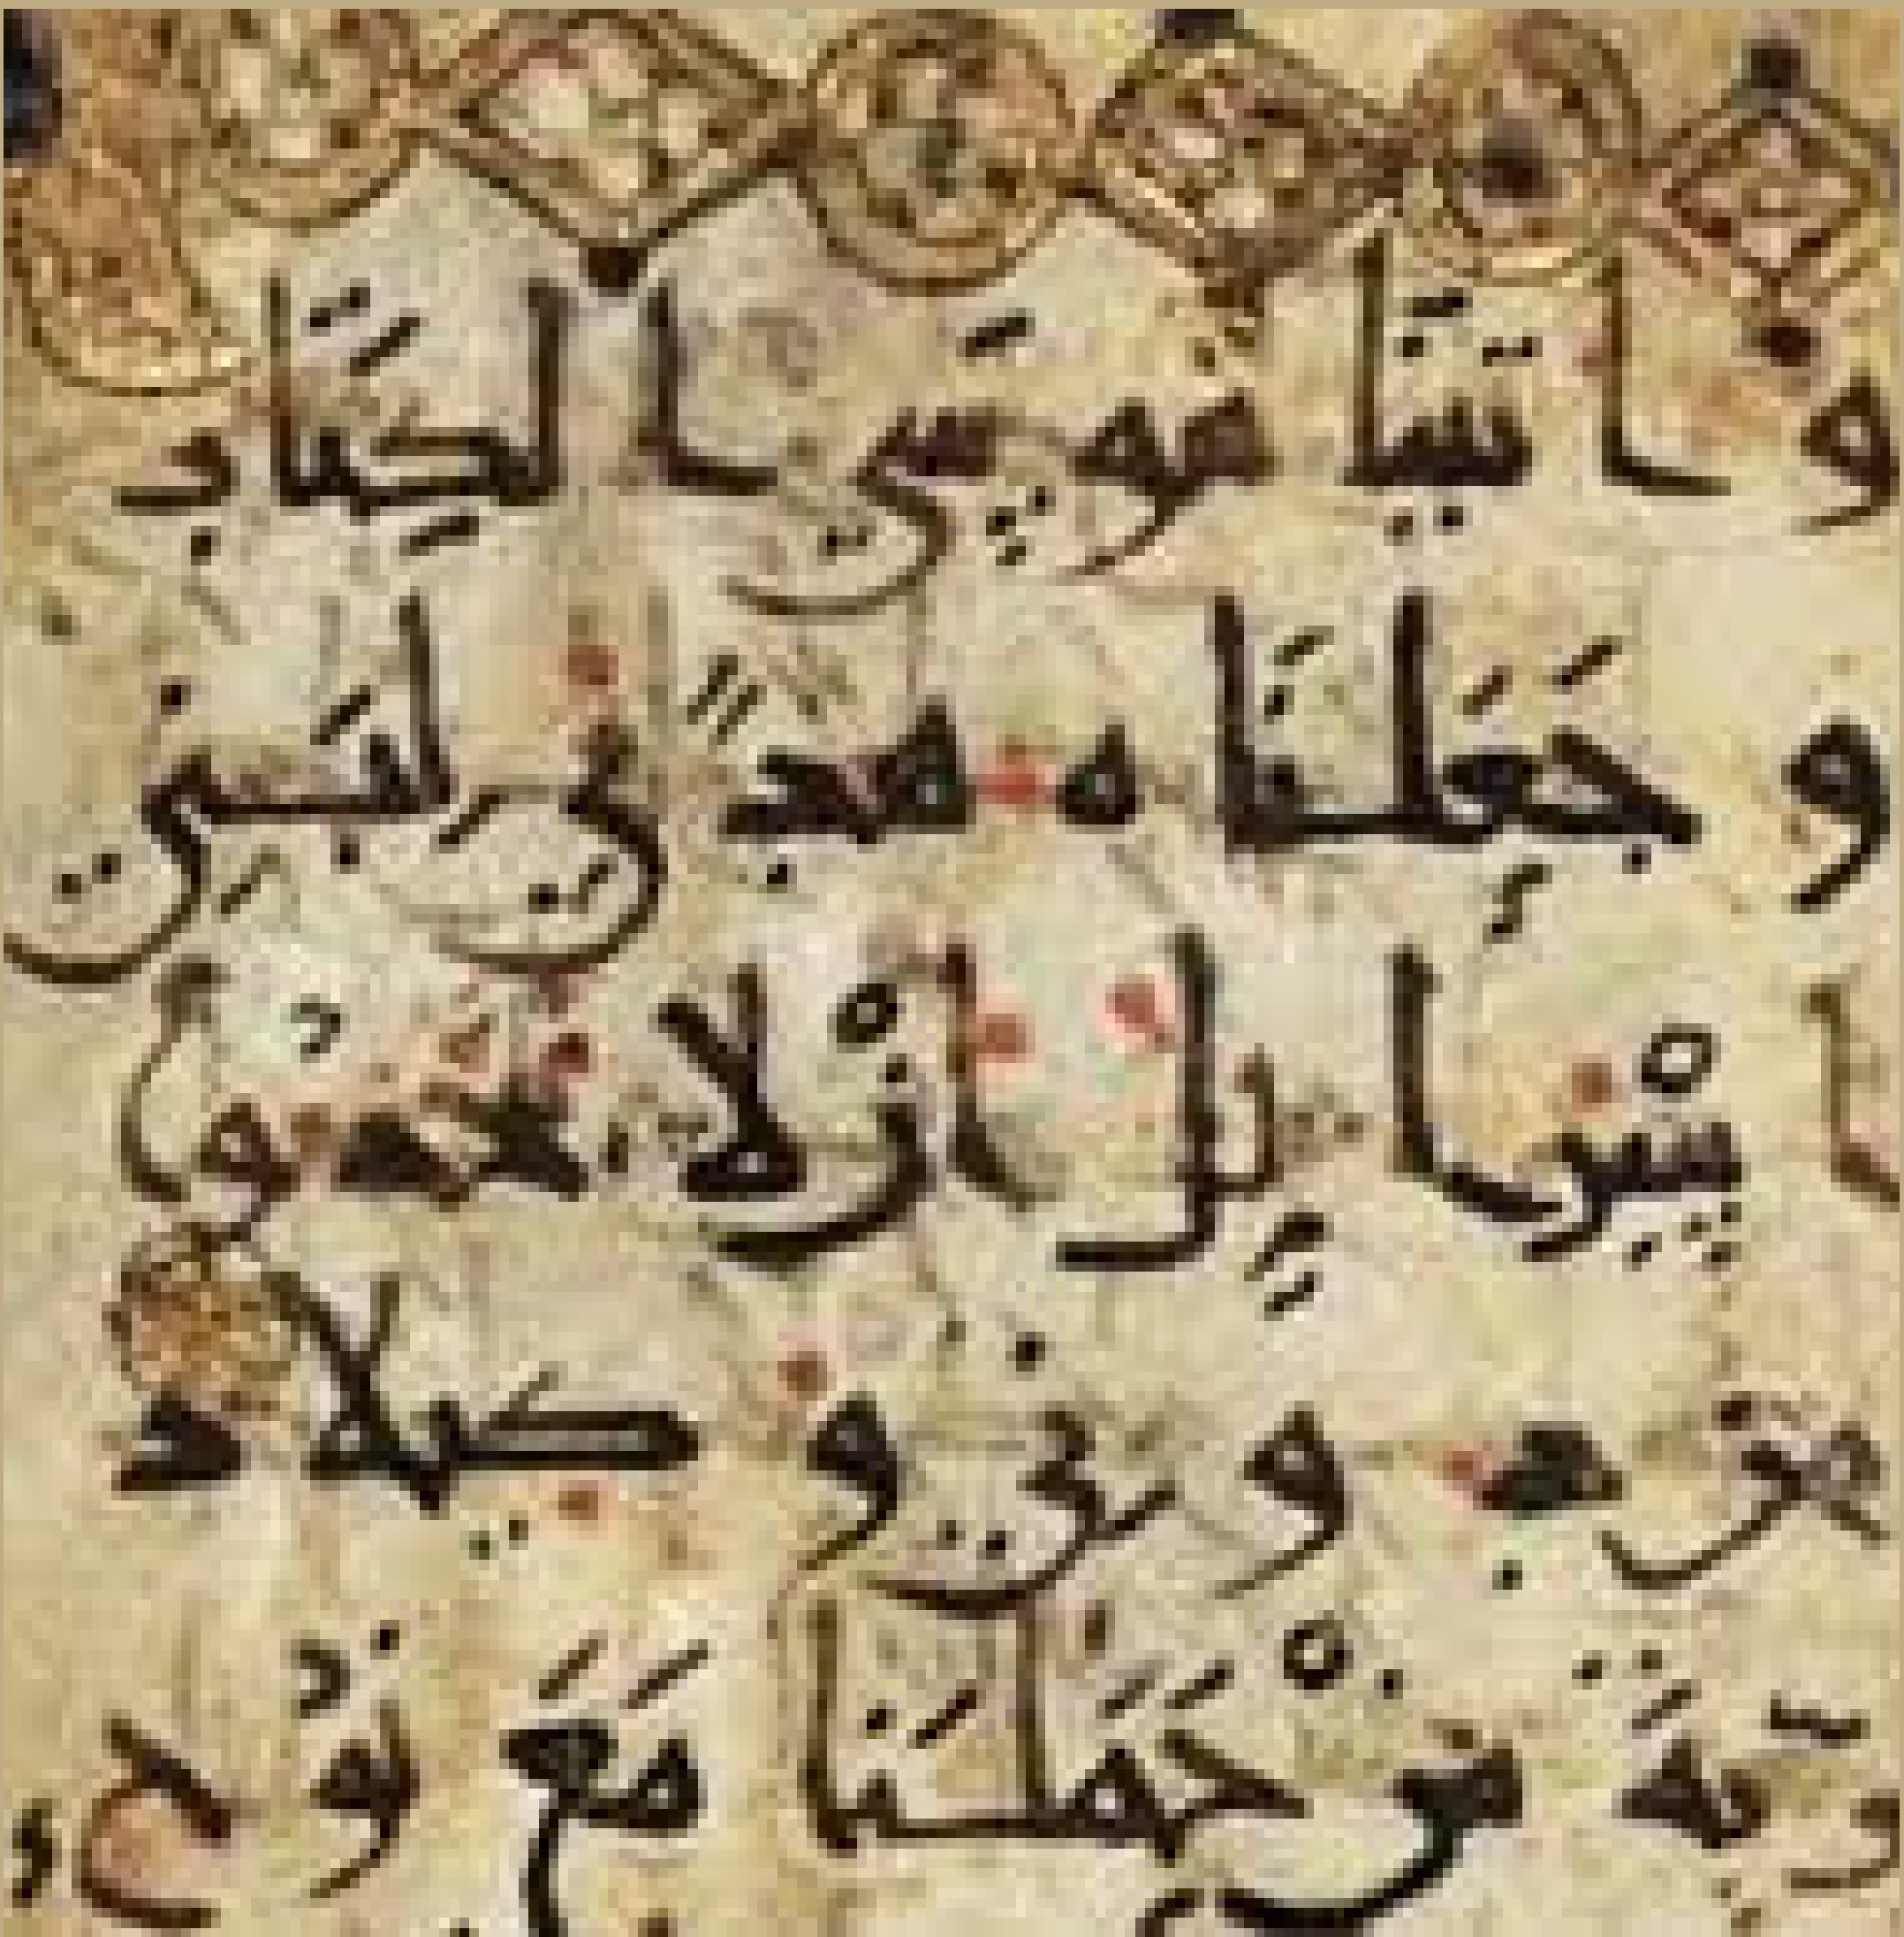 وَاتَيْنَا مُوسَى الْكِتَابَ
وَجَعَلْنَاهُ هُدًى لِبَنِي
إِسْرَائِيلَ أَلَّا تَتَّخِذُوا
مِنْ دُونِي وَكِيلًا
ذُرِّيَّةَ مَنْ حَمَلْنَا مَعَ نُوحٍ